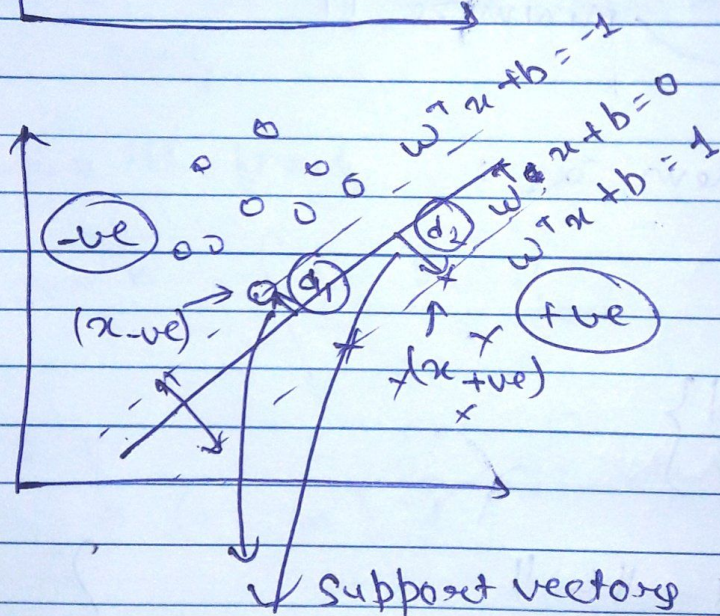 wᵀx+b=-1
wᵀx+b=0
wᵀx+b=1
-ve
d₂
d₁
(x-ve)
+ve
(x+ve)
Support vectors